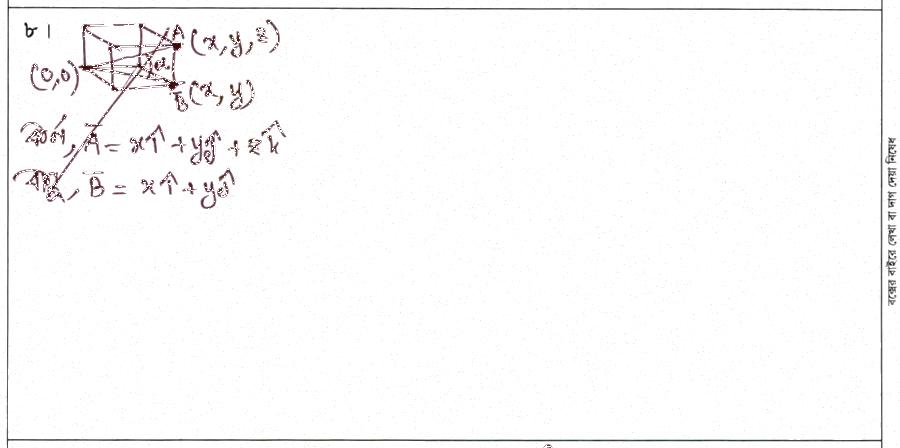 ৮।
A (x, y, z)
(0,0)
α
B (x, y)
কর্ণ, A̅ = xî + yĵ + zk̂
বাহু, B̅ = xî + yĵ
বক্সের বাইরে লেখা বা দাগ দেয়া নিষেধ